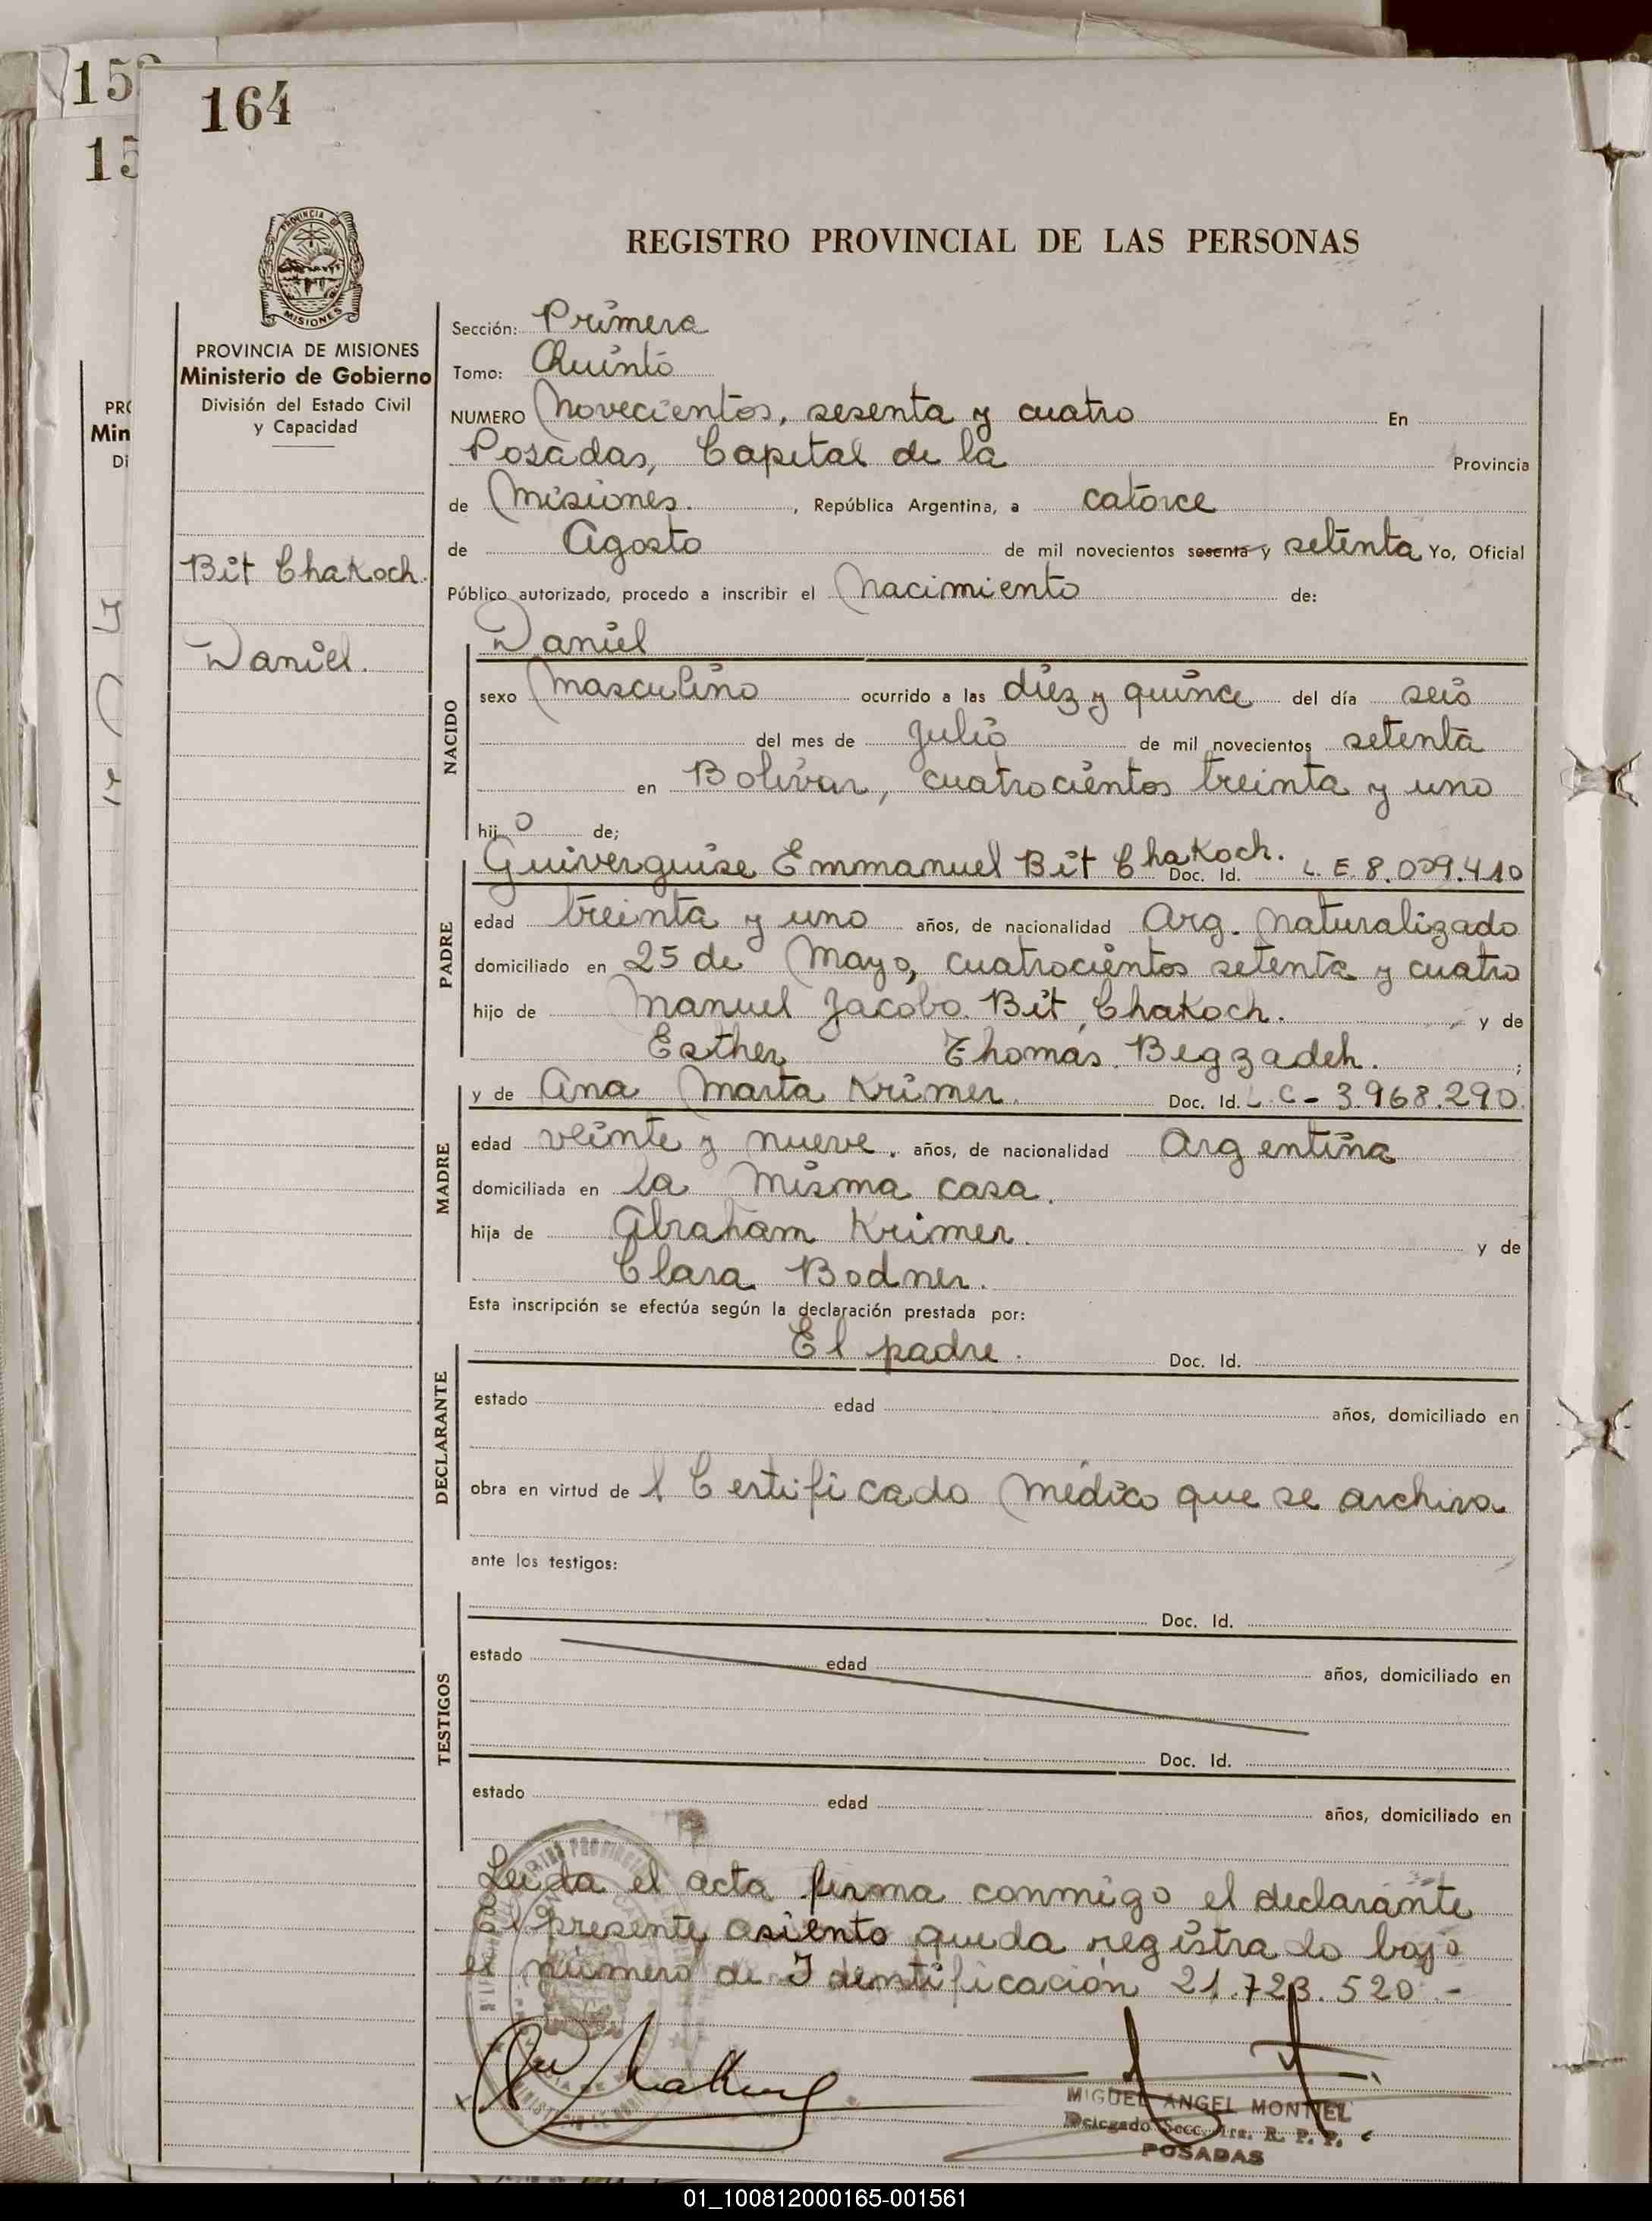 158
15
164
PROVINCIA DE
MISIONES
REGISTRO PROVINCIAL DE LAS PERSONAS
PROVINCIA DE MISIONES
Ministerio de Gobierno
División del Estado Civil
y Capacidad
PRO
Min
Di
Bit Chakoch.
Daniel.
Sección: Primera
Tomo: Quinto
NUMERO Novecientos, sesenta y cuatro En
Posadas, Capital de la Provincia
de Misiones. , República Argentina, a catorce
de Agosto de mil novecientos sesenta y setenta Yo, Oficial
Público autorizado, procedo a inscribir el Nacimiento de:
NACIDO
Daniel
sexo Masculino ocurrido a las diez y quince del día seis
del mes de Julio de mil novecientos setenta
en Bolívar, cuatrocientos treinta y uno
hij o de;
PADRE
Guiverguise Emmanuel Bit Chakoch. Doc. Id. L. E. 8.009.410
edad treinta y uno años, de nacionalidad Arg. Naturalizado
domiciliado en 25 de Mayo, cuatrocientos setenta y cuatro
hijo de Manuel Jacobo Bit Chakoch. y de
Esther Thomas Begzadeh. ;
MADRE
y de Ana Marta Krimer. Doc. Id. L. C - 3.968.290
edad veinte y nueve. años, de nacionalidad Argentina
domiciliada en la misma casa.
hija de Abraham Krimer. y de
Clara Bodner.
Esta inscripción se efectúa según la declaración prestada por:
DECLARANTE
El padre. Doc. Id.
estado edad años, domiciliado en
obra en virtud de l Certificado Médico que se archiva
ante los testigos:
TESTIGOS
Doc. Id.
estado edad años, domiciliado en
Doc. Id.
estado edad años, domiciliado en
Leida el acta firma conmigo el declarante
El presente asiento queda registrado bajo
el número de Identificación 21.723.520.-
MIGUEL ANGEL MONTIEL
Delegado Secc. 1ra. R. P. P.
POSADAS
01_100812000165-001561